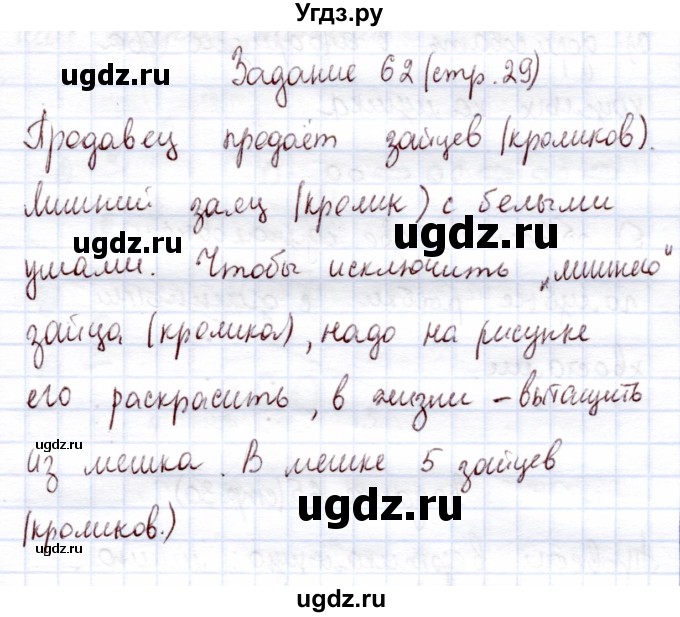 Угдз.ру
Задание 62 (стр. 29)
Продавец продаёт зайцев (кроликов).
Лишний заяц (кролик) с белыми
ушами. Чтобы исключить „лишнего"
зайца (кролика), надо на рисунке
его раскрасить, в жизни - вытащить
из мешка. В мешке 5 зайцев
(кроликов.)
ugdz.ru
ugdz.ru
ugdz.ru
ugdz.ru
ugdz.ru
ugdz.ru
ugdz.ru
ugdz.ru
ugdz.ru